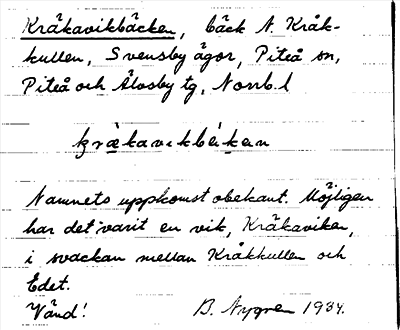 Kråkavikbäcken, bäck N. Kråk-
kullen, Svensby ägor, Piteå sn,
Piteå och Älvsby tg, Norrb. l
kråkavikbäkan
Namnets uppkomst obekant. Möjligen
har det varit en vik, Kråkaviken,
i svackan mellan Kråkkullen och
Edet.
Vänd! B. Nygren 1934.